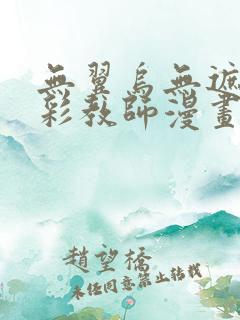 無翼烏無遮
彩教師漫畫
趙望橋
未任同意禁止转载